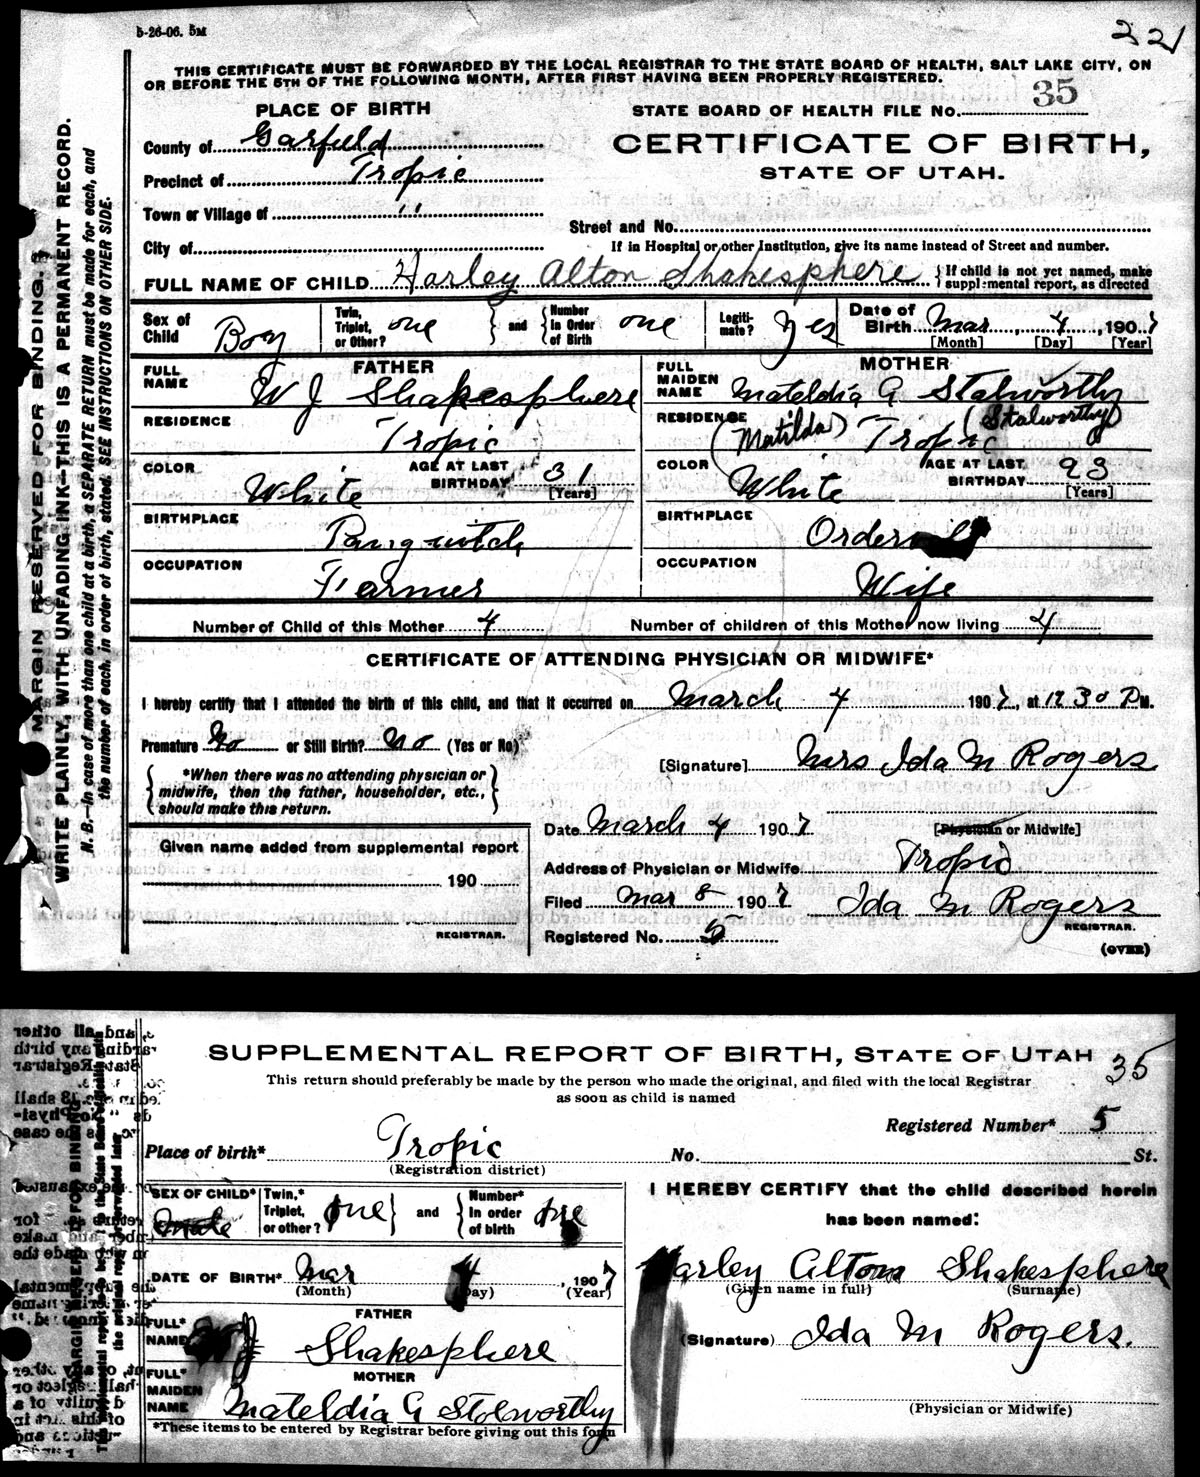 5-26-06. 5M
221
THIS CERTIFICATE MUST BE FORWARDED BY THE LOCAL REGISTRAR TO THE STATE BOARD OF HEALTH, SALT LAKE CITY, ON
OR BEFORE THE 5TH OF THE FOLLOWING MONTH, AFTER FIRST HAVING BEEN PROPERLY REGISTERED.
MARGIN RESERVED FOR BINDING.
WRITE PLAINLY, WITH UNFADING INK—THIS IS A PERMANENT RECORD.
N. B.—In case of more than one child at a birth, a SEPARATE RETURN must be made for each, and
the number of each, in order of birth, stated. SEE INSTRUCTIONS ON OTHER SIDE.
PLACE OF BIRTH
STATE BOARD OF HEALTH FILE No. 35
County of Garfield
CERTIFICATE OF BIRTH,
STATE OF UTAH.
Precinct of Tropic
Town or Village of "
Street and No.
City of
If in Hospital or other Institution, give its name instead of Street and number.
FULL NAME OF CHILD Harley Alton Shakesphere
If child is not yet named, make
supplemental report, as directed
Sex of Child Boy
Twin, Triplet, or Other? one
and
Number In Order of Birth one
Legiti- mate? Yes
Date of Birth Mar 4, 1907
[Month] [Day] [Year]
FATHER
MOTHER
FULL NAME W J Shakesphere
FULL MAIDEN NAME Mateldia G Stalworthy
RESIDENCE Tropic
RESIDENCE (Matilda) Tropic (Stalworthy)
COLOR White
AGE AT LAST BIRTHDAY 31 [Years]
COLOR White
AGE AT LAST BIRTHDAY 93 [Years]
BIRTHPLACE Panguitch
BIRTHPLACE
OCCUPATION Farmer
OCCUPATION Wife
Number of Child of this Mother 4
Number of children of this Mother now living 4
CERTIFICATE OF ATTENDING PHYSICIAN OR MIDWIFE*
I hereby certify that I attended the birth of this child, and that it occurred on March 4 1907, at 12 30 P M.
Premature No or Still Birth? No (Yes or No)
*When there was no attending physician or
midwife, then the father, householder, etc.,
should make this return.
[Signature] Mrs Ida M Rogers
[Physician or Midwife]
Date March 4 1907
Given name added from supplemental report
190
REGISTRAR.
Address of Physician or Midwife Tropic
Filed Mar 8 1907 Ida M Rogers
REGISTRAR.
Registered No. 5
(OVER)
SUPPLEMENTAL REPORT OF BIRTH, STATE OF UTAH
35
This return should preferably be made by the person who made the original, and filed with the local Registrar
as soon as child is named
Registered Number* 5
Place of birth* Tropic No. St.
(Registration district)
SEX OF CHILD* Male
Twin,* Triplet, or other? one
and
Number* In order of birth one
I HEREBY CERTIFY that the child described herein
has been named:
DATE OF BIRTH* Mar 4, 1907
(Month) (Day) (Year)
Harley Alton Shakesphere
(Given name in full) (Surname)
FATHER
FULL* NAME W J Shakesphere
(Signature) Ida M Rogers.
MOTHER
FULL* MAIDEN NAME Mateldia G Stolworthy
(Physician or Midwife)
*These items to be entered by Registrar before giving out this form